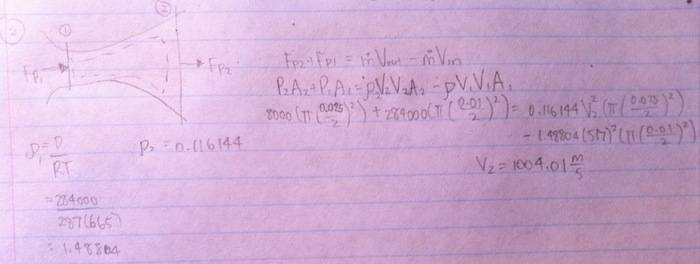 ②
① ②
Fp₁ → → Fp₂
Fp₂ + Fp₁ = ṁVout - ṁVin
P₂A₂ + P₁A₁ = ρ₂V₂V₂A₂ - ρV₁V₁A₁
8000(π(0.025/2)²) + 284000(π(0.01/2)²) = 0.116144 V₂²(π(0.025/2)²)
- 1.48804(517)²(π(0.01/2)²)
V₂ = 1004.01 m/s
ρ₁ = P/RT ρ₂ = 0.116144
= 284000/287(665)
= 1.48804